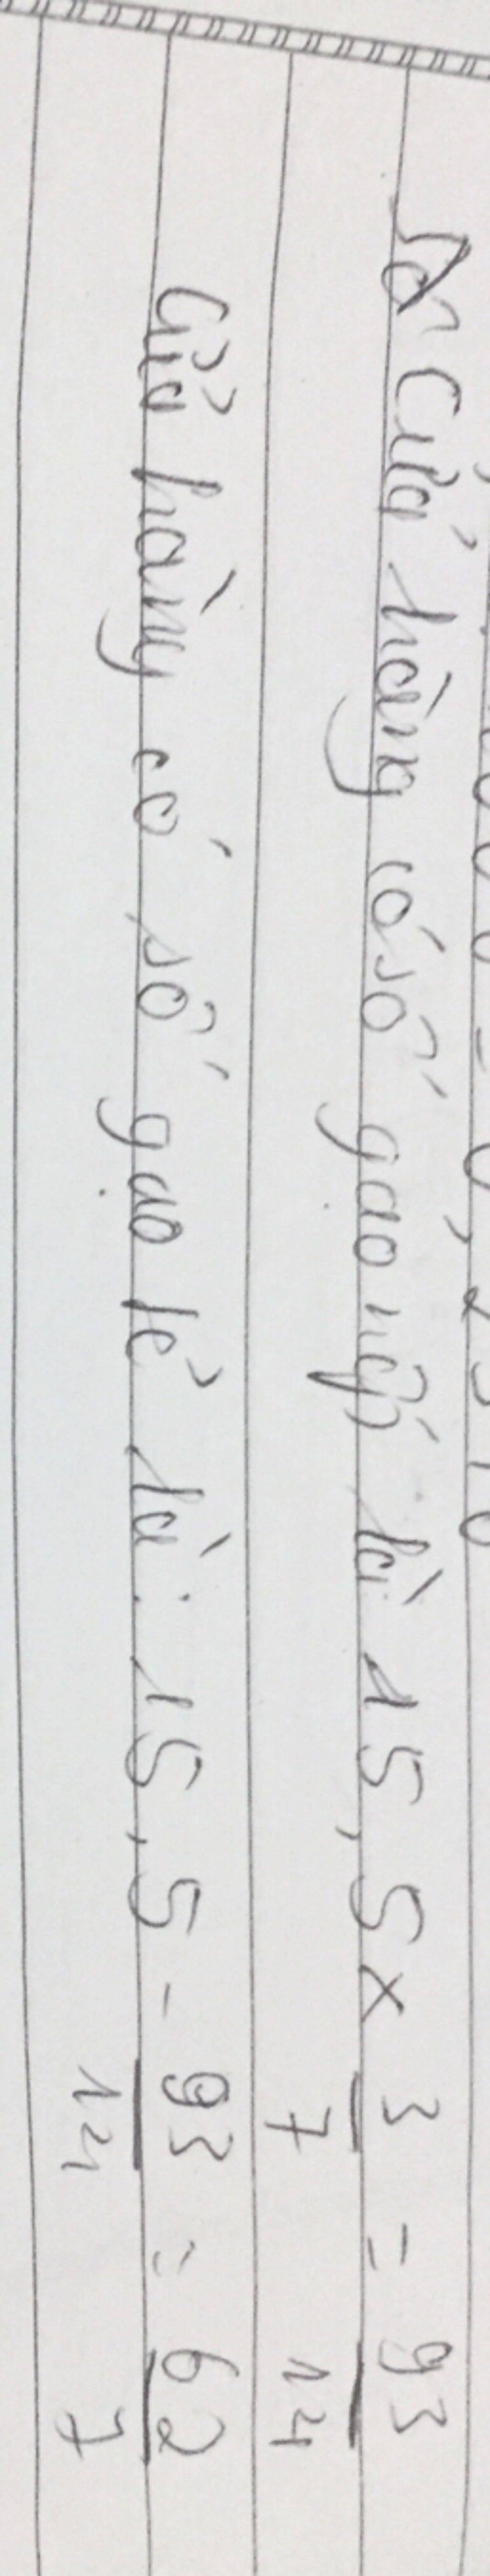 Cửa hàng có số gạo nếp là 15,5 x 3/7 = 93/14
Cửa hàng có số gạo lẻ là: 15,5 - 93/14 = 62/7